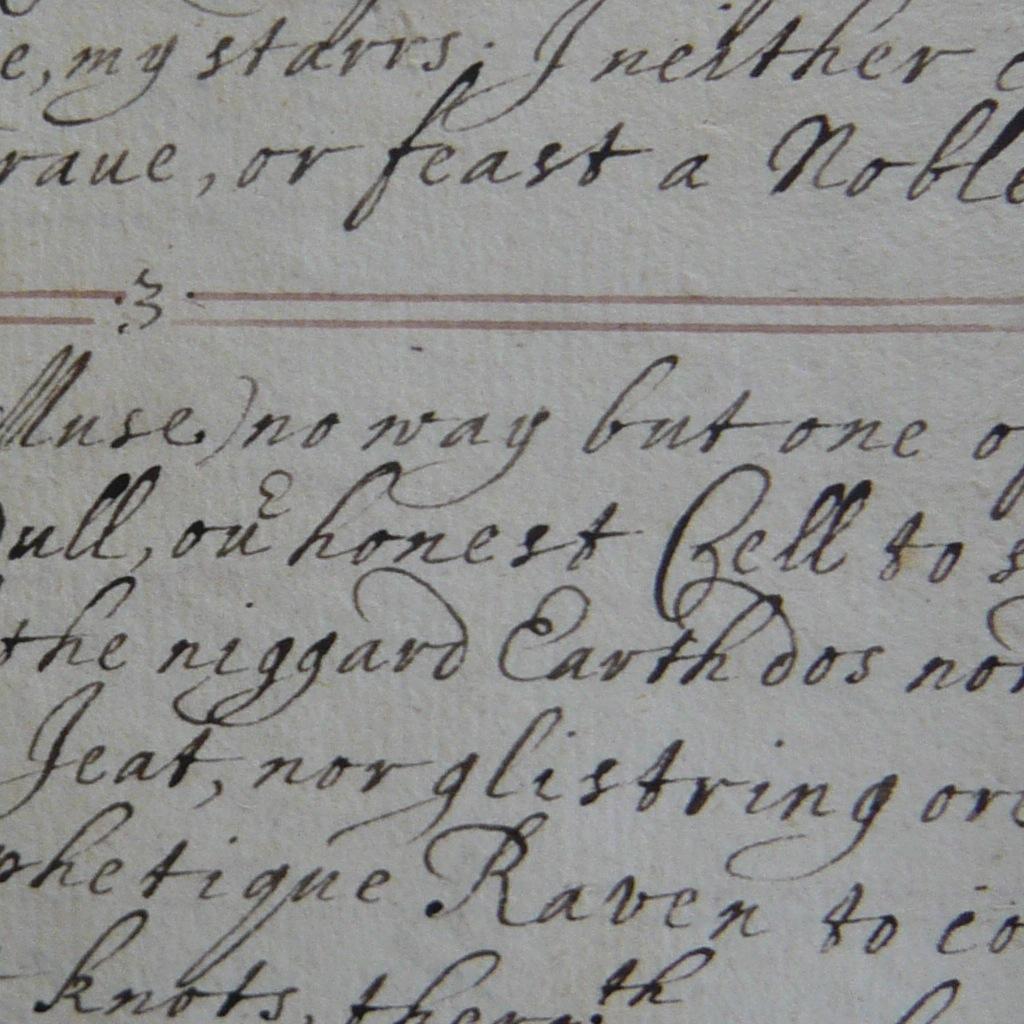 e, my starrs. I neither
raue, or feast a Noble
.3.
Muse) no way but one
Dull, our honest Cell to s
the niggard Earth dos nor
Jeat, nor glistring or
phetique Raven to co
knots, therwth